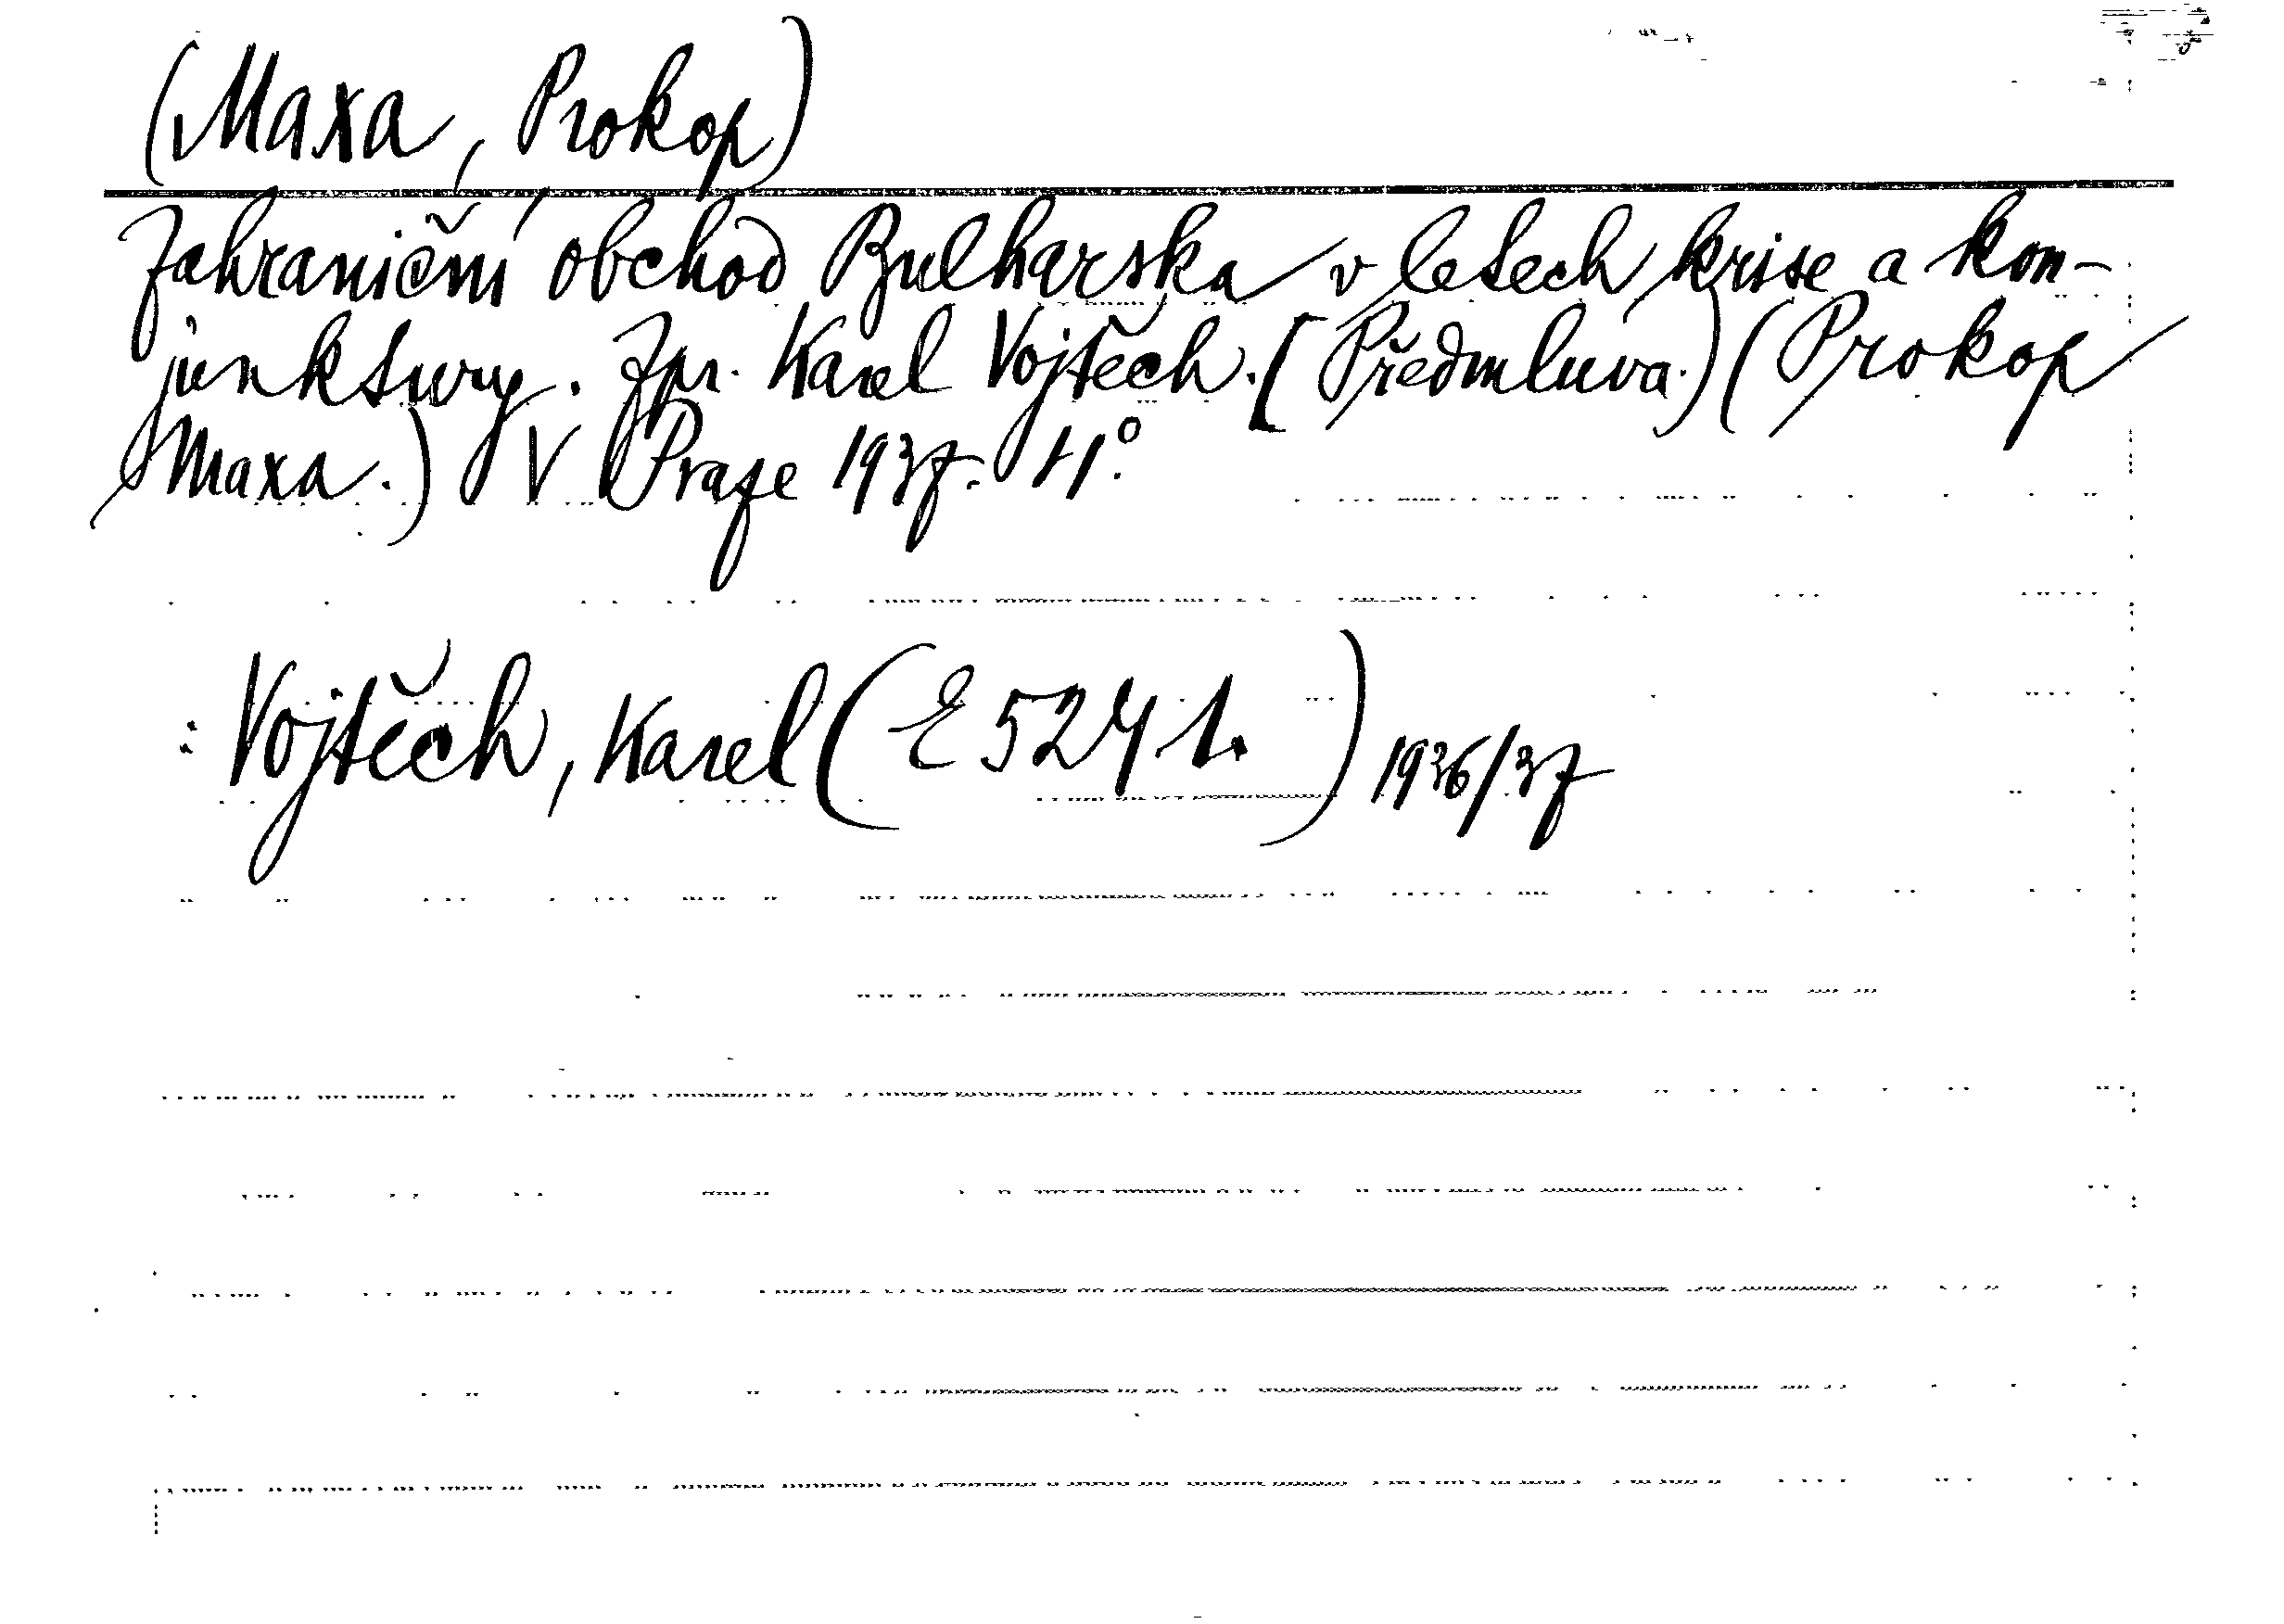 (Maxa, Prokop)
Zahraniční obchod Bulharska v letech krise a kon-
junktury. Zpr. Karel Vojtěch. [Předmluva.) (Prokop
Maxa.) V Praze 1937. 4°.
: Vojtěch, Karel (E 524 1. ) 1936/37